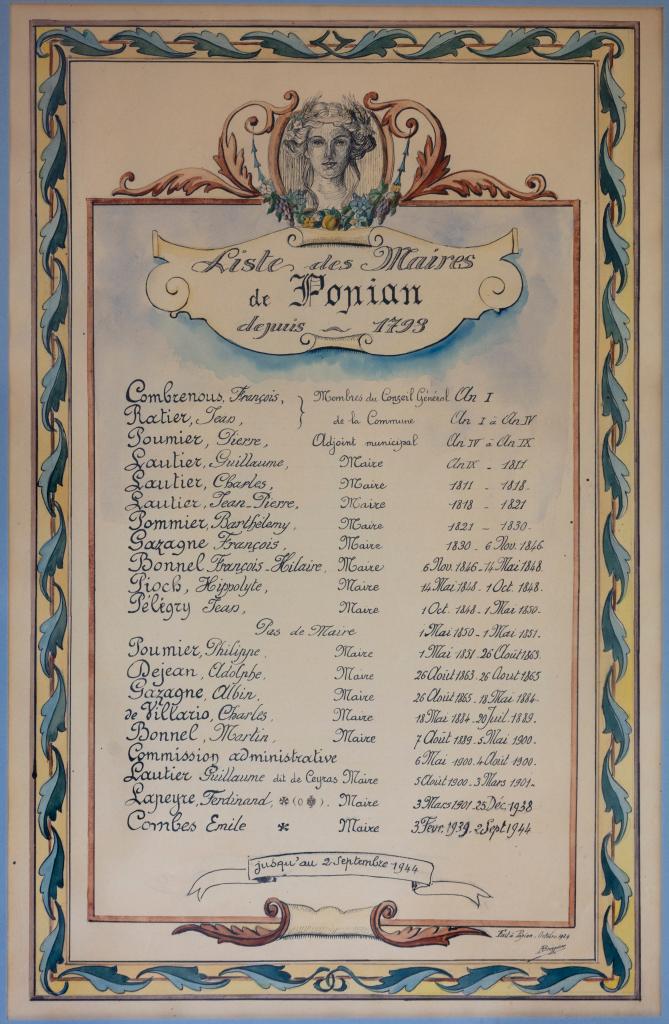 Liste des Maires
de Popian
depuis ~ 1793
Combrenous, François, } Membres du Conseil Général An I
Ratier, Jean, de la Commune An I à An IV
Poumier, Pierre, Adjoint municipal An IV à An IX
Lautier, Guillaume, Maire An IX - 1811
Lautier, Charles, Maire 1811 - 1818.
Lautier, Jean-Pierre, Maire 1818 - 1821
Pommier, Barthélemy, Maire 1821 - 1830.
Gazagne François, Maire 1830 - 6 Nov. 1846
Bonnel François-Hilaire, Maire 6 Nov. 1846 - 14 Mai 1848
Pioch, Hippolyte, Maire 14 Mai 1848 - 1 Oct. 1848.
Péligry Jean, Maire 1 Oct. 1848 - 1 Mar 1850.
Pas de Maire 1 Mai 1850 - 1 Mai 1851.
Poumier, Philippe, Maire 1 Mai 1851 - 26 Août 1863.
Dejean, Adolphe, Maire 26 Août 1863. 26 Aout 1865
Gazagne, Albin, Maire 26 Août 1865 - 18 Mai 1884.
de Villario, Charles, Maire 18 Mai 1884 - 20 Juil. 1889.
Bonnel, Martin, Maire 7 Août 1889 - 5 Mai 1900.
Commission administrative 6 Mai 1900 - 4 Août 1900.
Lautier Guillaume dit de Ceyras Maire 5 Août 1900 - 3 Mars 1901 -
Lapeyre, Ferdinand, Maire 3 Mars 1901 - 25 Déc. 1938
Combes Emile Maire 3 Févr. 1939 - 2 Sept 1944
jusqu'au 2 Septembre 1944
Fait à Popian, Octobre